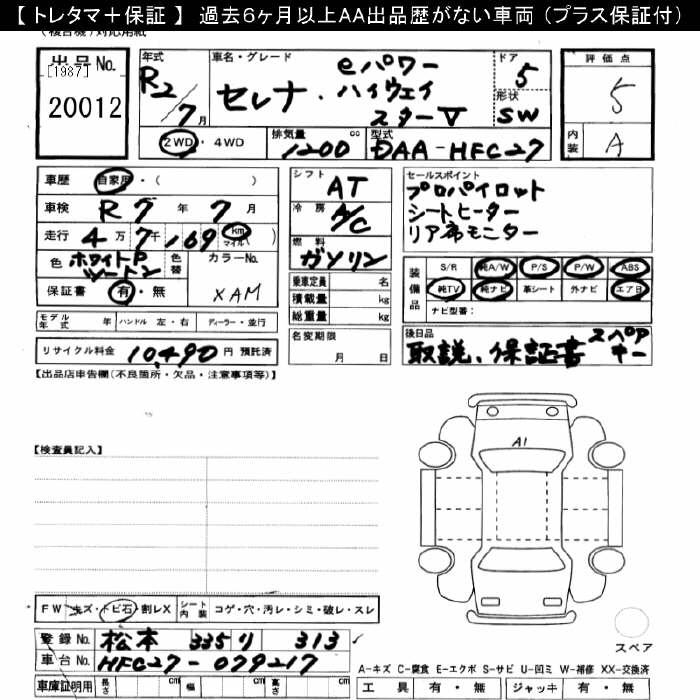 【 トレタマ＋保証 】 過去6ヶ月以上AA出品歴がない車両（プラス保証付）
出品No.
[1987]
20012
年式
R2/7月
車名・グレード
セレナ・ eパワー
ハイウェイ
スターV
ドア
5
形状
SW
評価点
5
内装
A
2WD・4WD
排気量
1200 cc
型式
DAA-HFC27
車歴 自家用・( )
車検 R 7 年 7 月
走行 4万7千169 km マイル( )
色 ホワイトP
ツートン
色替
カラーNo.
XAM
保証書 有・無
シフト
AT
冷房
A/C
燃料
ガソリン
乗車定員 名
積載量 kg
総重量 kg
名変期限
月 日
セールスポイント
プロパイロット
シートヒーター
リア席モニター
装備品
S/R 純A/W P/S P/W ABS
純TV 純ナビ 革シート 外ナビ エアB
ナビ型番：
モデル年式 年 ハンドル 左・右 ディーラー・並行
リサイクル料金 10,490 円 預託済
後日品
取説、保証書 スペアキー
【出品店申告欄（不良箇所・欠品・注意事項等）】
【検査員記入】
A1
FW キズ・トビ石・割レX シート内装 コゲ・穴・汚レ・シミ・破レ・スレ
登録No. 松本 335 り 313
車台No. HFC27-079217
車庫証明用 長さ cm 幅 cm 高さ cm
スペア
A-キズ C-腐食 E-エクボ S-サビ U-凹ミ W-補修 XX-交換済
工具 有・無 ジャッキ 有・無